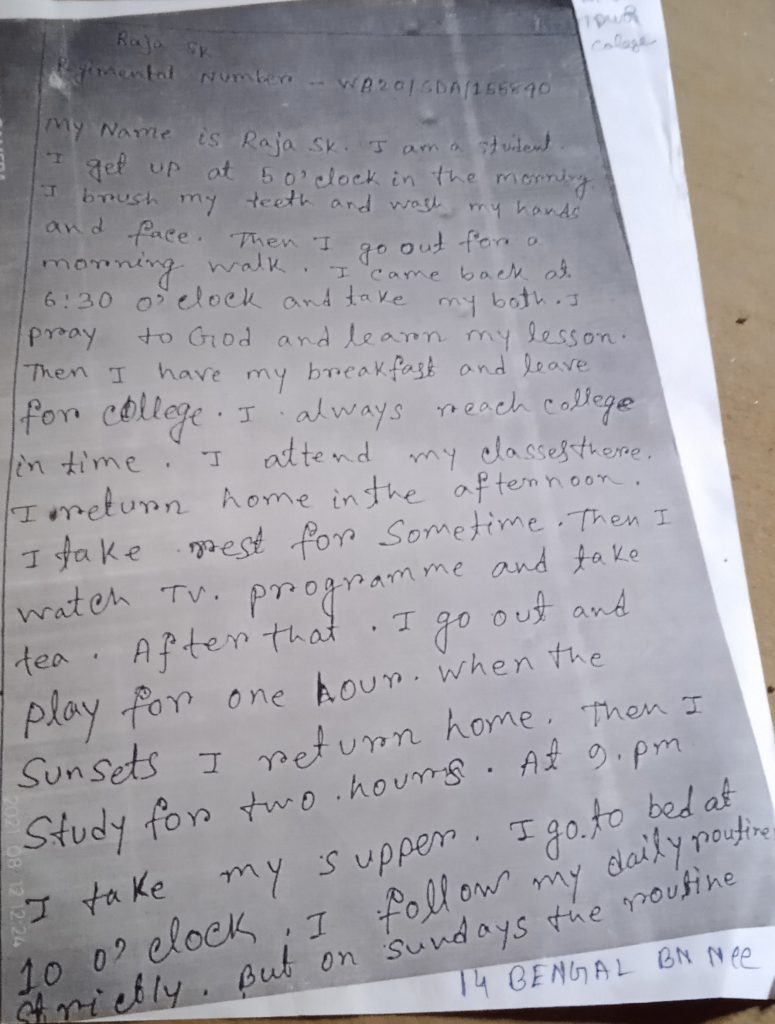 Raja SK
Regimental Number - WB20/SDA/155890
My Name is Raja SK. I am a student.
I get up at 5 o'clock in the morning.
I brush my teeth and wash my hands
and face. Then I go out for a
morning walk. I came back at
6:30 o'clock and take my bath. I
pray to God and learn my lesson.
Then I have my breakfast and leave
for college. I always reach college
in time. I attend my classes there.
I return home in the afternoon.
I take rest for Sometime. Then I
watch TV. programme and take
tea. After that. I go out and
play for one hour. when the
Sunsets I return home. Then I
Study for two hours. At 9. pm
I take my supper. I go to bed at
10 o'clock. I follow my daily routine
strictly. But on sundays the routine
14 BENGAL BN Nee
College
2021.08.12 12:24